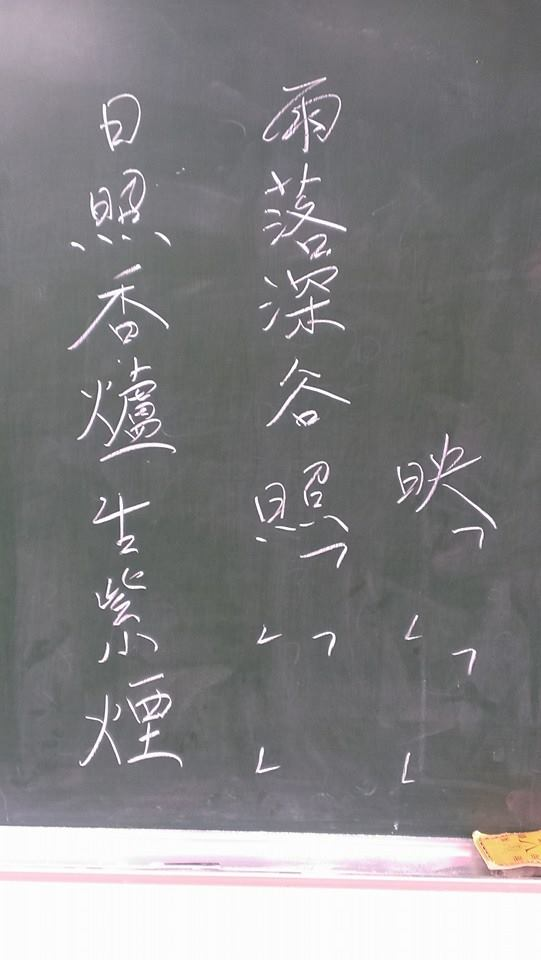 映﹁﹂﹁﹂
雨落深谷照﹁﹂﹁﹂
日照香爐生紫煙